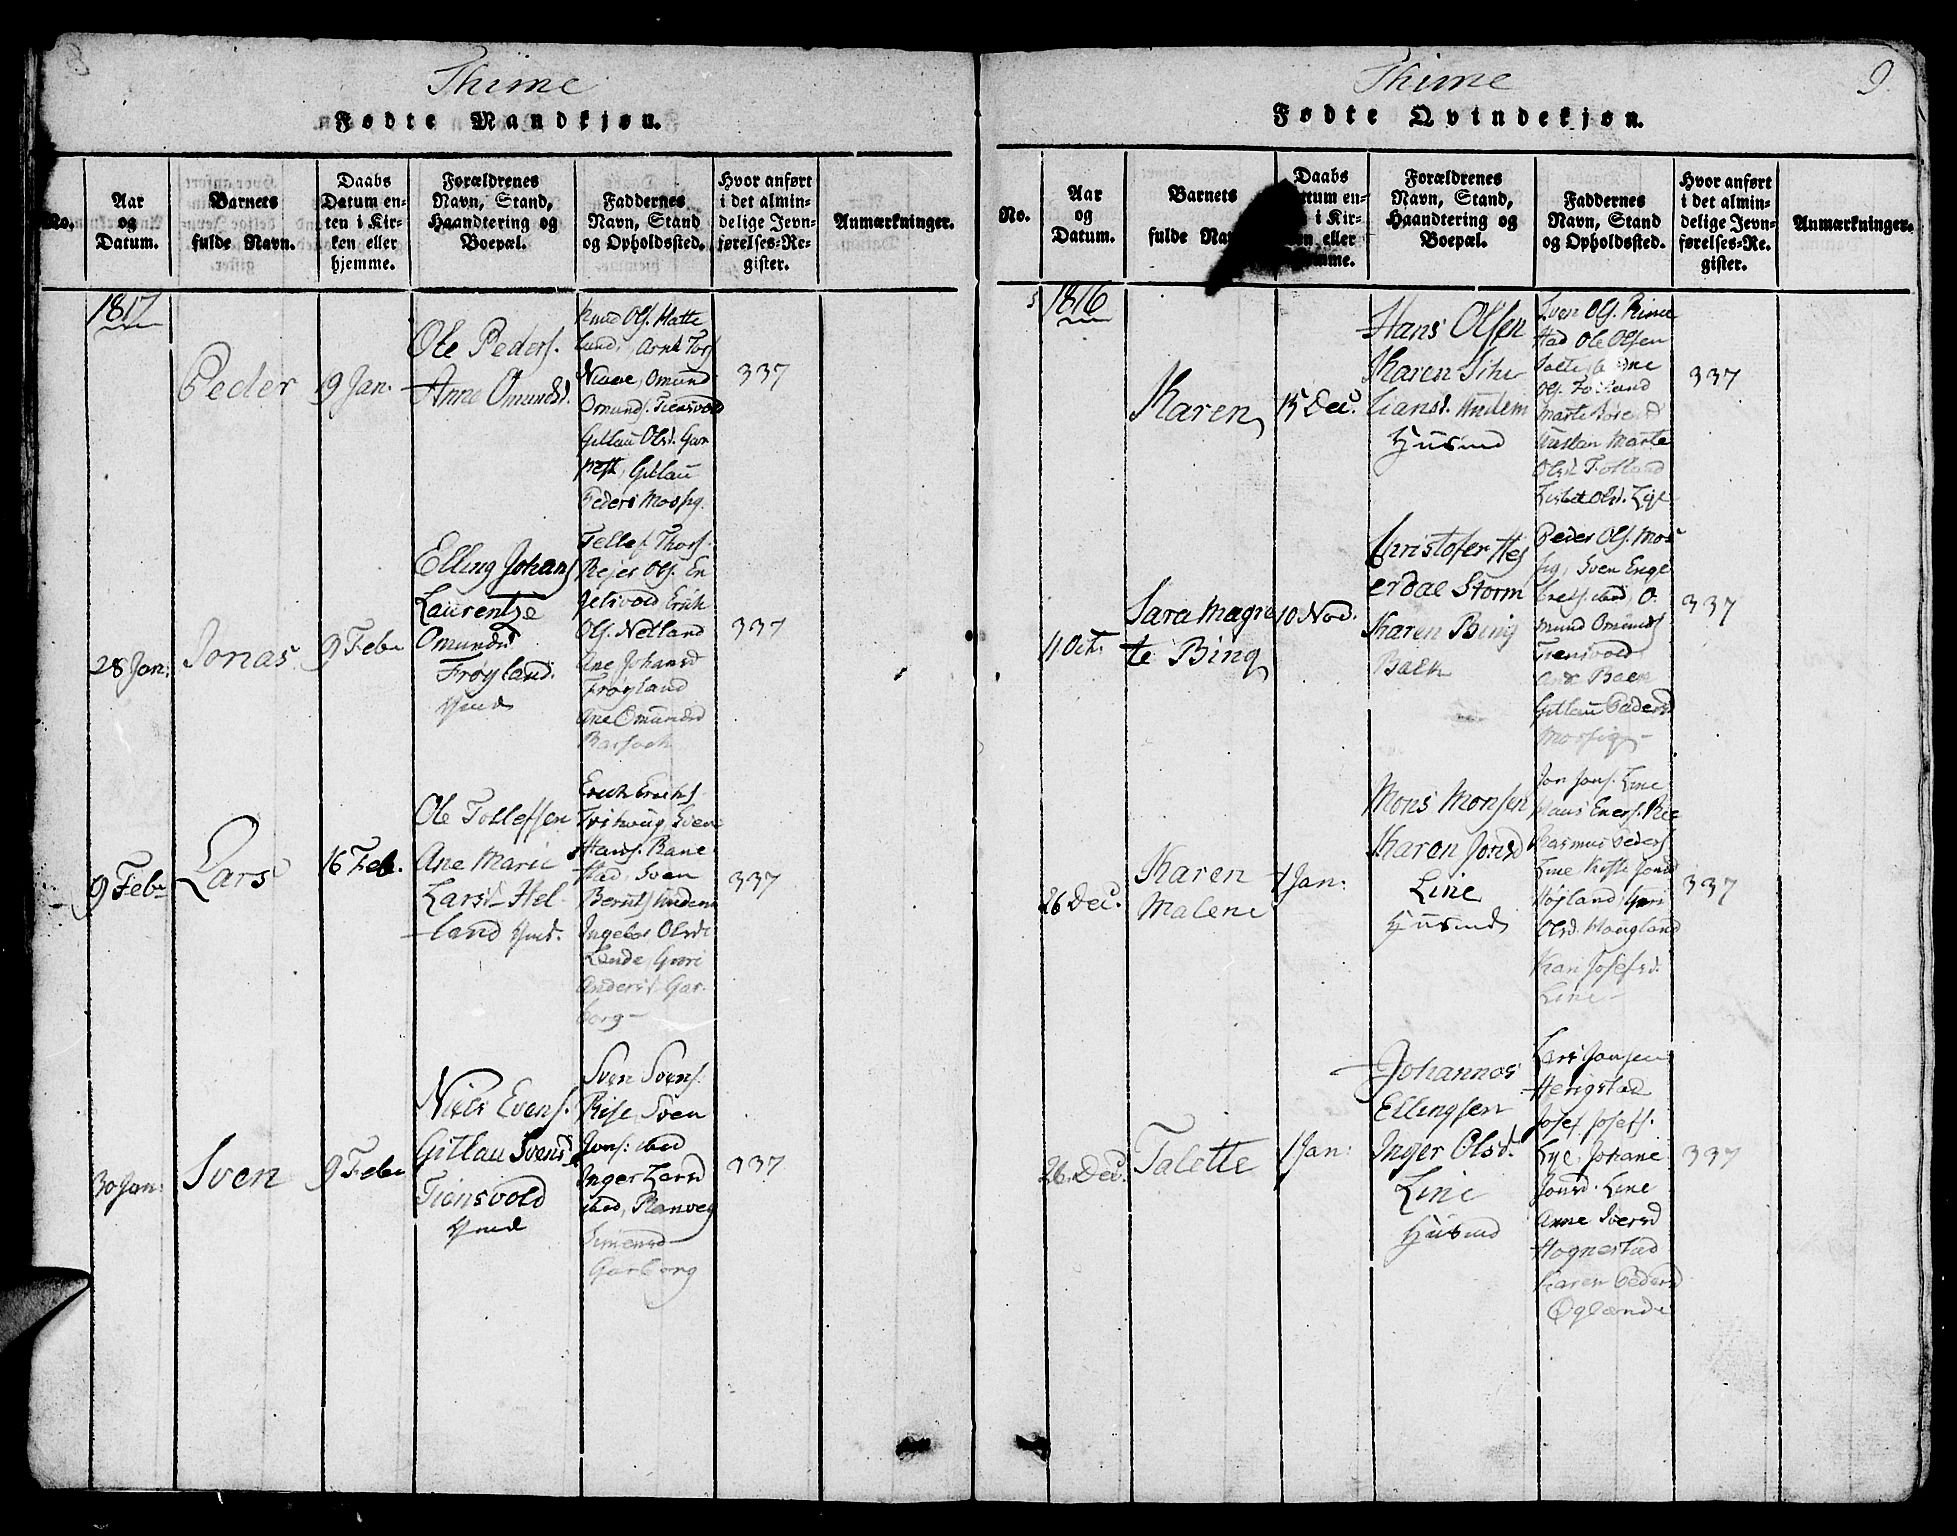 Thime
Fødte Mandkjøn.
No.
Aar
og
Datum.
Barnets
fulde Navn.
Daabs
Datum en-
ten i Kir-
ken eller
hjemme.
Forældrenes
Navn, Stand,
Haandtering og
Boepæl.
Faddernes
Navn, Stand
og Opholdssted.
Hvor anført
i det almin-
delige Jevn-
førelses-Re-
gister.
Anmærkninger.
1817
Peder
9 Jan.
Ole Peders.
Anne Omundsd.
Knud Ols. Hatte
land, Arne Tors
Omund
Omunds. Tiensvold
Gitlau Olsd. Gar
Gitlau
Peders Mossig.
337
28 Jan.
Jonas
9 Feb
Elling Johans
Laurentze
Omundsd
Frøyland.
Hmd
Tellef Thors.
Rejer Ols. En
jelsvold Erich
Ols. Netland
Ane Johansd
Frøyland
Ane Omundsd
337
9 Feb
Lars
16 Feb.
Ole Tollefsen
Ane Marie
Larsd Hel-
land Hmd.
Erich Erichs.
Sven
Hans. Rane
stad, Sven
Bernts Undem
Ingebor Olsd
Lende, Guri
Andersd Gar-
borg
337
30 Jan.
Sven
9 Feb
Niels Evens.
Gitlau Svensd
Tiensvold
Hmd
Sven Svens.
Rise, Sven
Jons: ibid
Inger Larsd
ibid, Ranveg
Simensd
Garborg
337
Thime
9.
Fødte Qvindekjøn.
No.
Aar
og
Datum.
Barnets
fulde Nav
Daabs
tum en-
i Kir-
en eller
mme.
Forældrenes
Navn, Stand,
Haandtering og
Boepæl.
Faddernes
Navn, Stand
og Opholdssted.
Hvor anført
i det almin-
delige Jevn-
førelses-Re-
gister.
Anmærkninger.
5
1816
Karen
15 Dec.
Hans Olsen
Karen
Undem
Husmd
Sven Ols. Rime
stad Ole Olsen
Marte
Olsd Folland
Lisbet Olsd. Lye
337
11 Oct.
Sara Magre
te Bing
10 Nov.
Christofer Hej
erdal Storm
Karen Bing
Balk
Peder Ols. Mos
sig, Sven Enge
ibid O-
mund Omunds
Tiensvold
Gitlau Pedersd
Mossige
337
26 Dec.
Karen
Malene
1 Jan:
Mons Monsen
Karen Jonsd
Line
Husmd
Jon Jons. Line
Rasmus Peders
Line Jonsd
Højland Guri
Olsd. Haugland
Josefsd.
Line
337
26. Dec.
Talette
1 Jan:
Johannes
Ellingsen
Inger Olsd.
Line
Husmd
Lars Jansen
Herigstad
Josef Josefs.
Lye, Johane
Jonsd. Line
Anne Sversd
Hognestad
Karen Pedersd
Øglænde
337